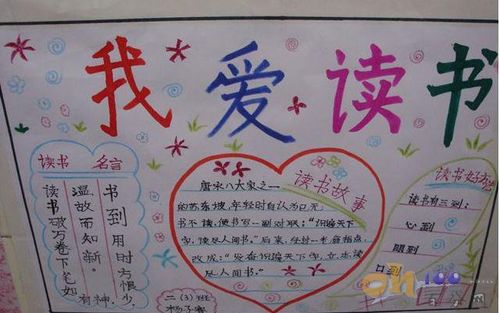 我爱读书
读书 名言
书到用时方恨少,
温故而知新。
读书破万卷下笔如
有神,
读书故事
唐宋八大家之一
的苏东坡,年轻时自认为已无
书不读,便书写一副对联:"识遍天下
字,读尽人间书。"后来,经过一老翁指点,
改成:"发奋识遍天下字,立志读
尽人间书。"
读书好
读书有三到:
心到
眼到
口到
二(3)班
杨子
100